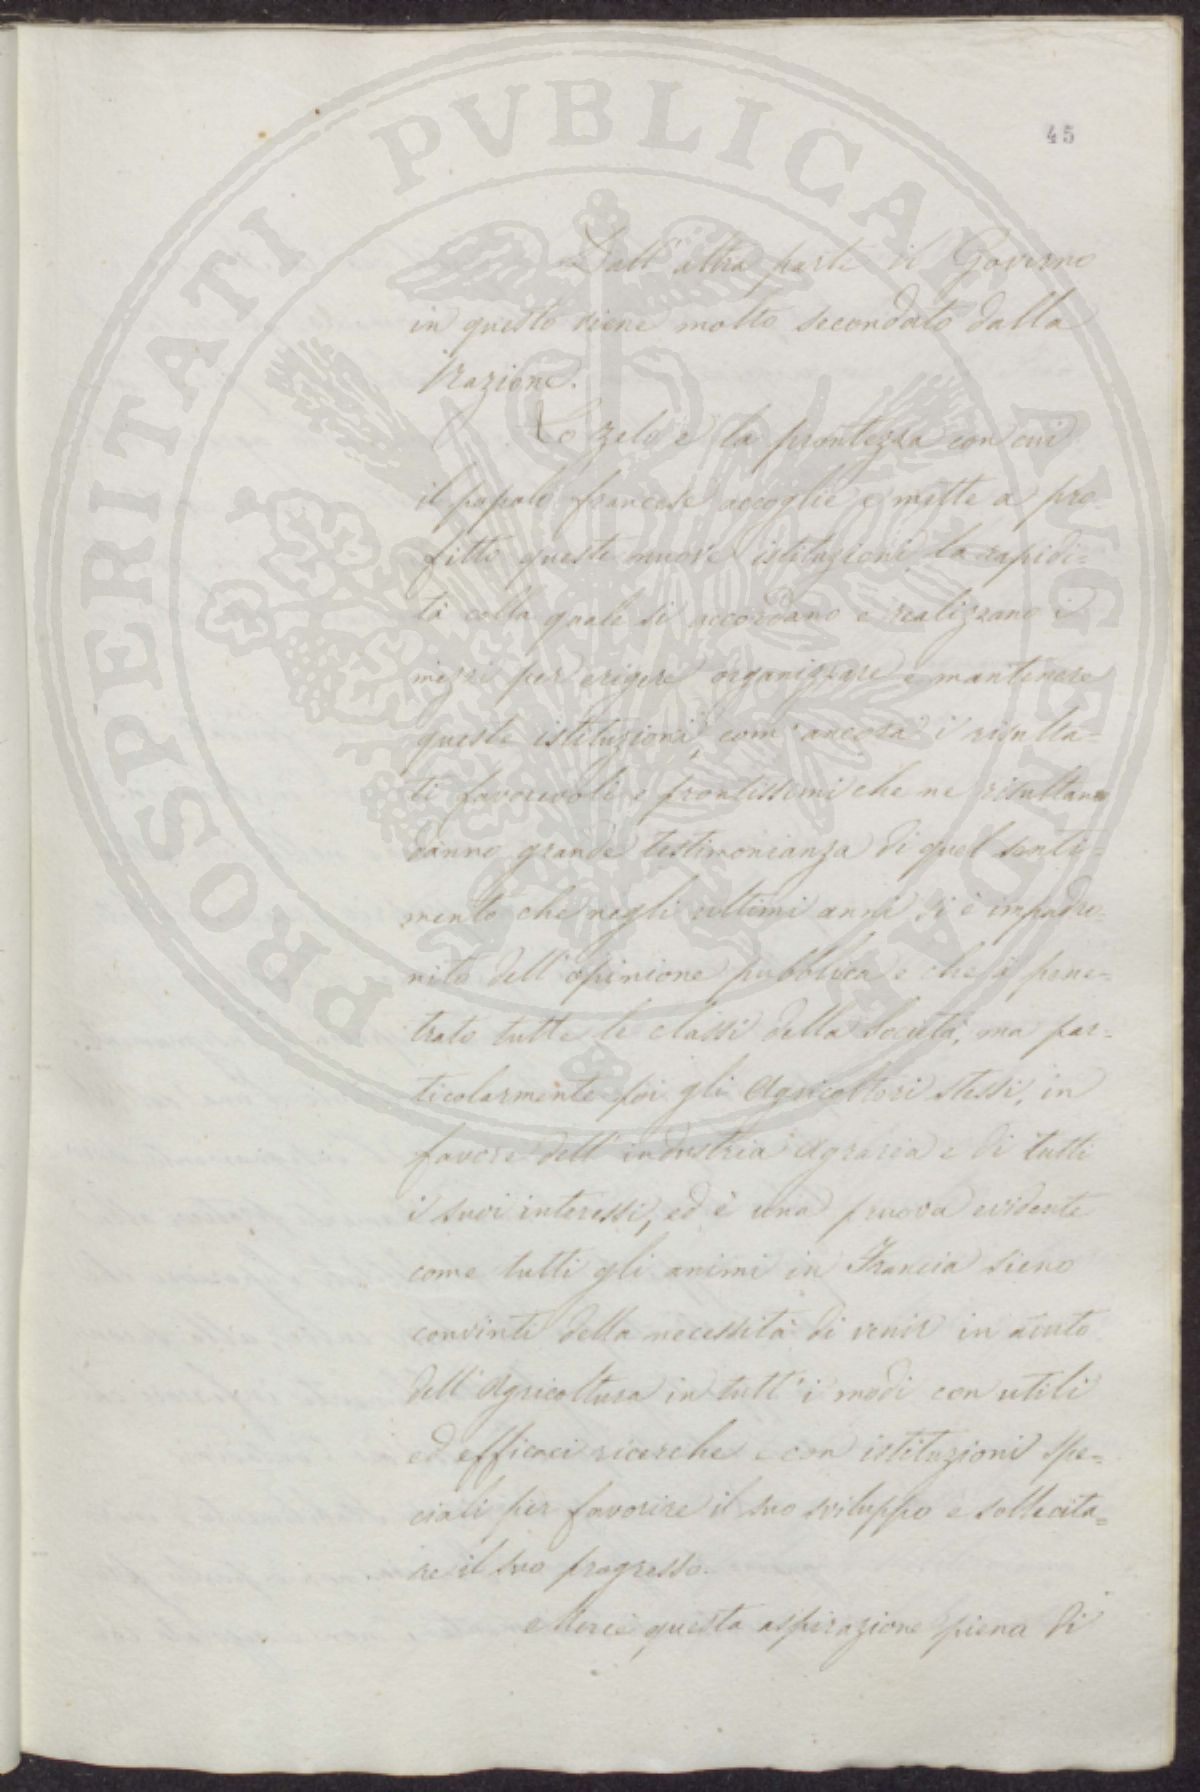 45
Dall'altra parte il Governo
in questo viene molto secondato dalla
Nazione.
Lo zelo e la prontezza con cui
il popolo francese accoglie e mette a pro-
fitto queste nuove istituzioni, la rapidi=
tà colla quale si accordano e realizzano i
mezzi per erigere organizzare e mantenere
queste istituzioni, com'ancora i risulta=
ti favorevoli e prontissimi che ne risultano
danno grande testimonianza di quel senti=
mento che negli ultimi anni si è impadro=
nito dell'opinione pubblica e che à pene=
trato tutte le classi della Società, ma par=
ticolarmente poi gli Agricoltori stessi, in
favore dell'industria Agraria e di tutti
i suoi interessi, ed è una pruova evidente
come tutti gli animi in Francia sieno
convinti della necessità di venir in aiuto
dell'Agricoltura in tutt'i modi con utili
ed efficaci ricerche e con istituzioni spe=
ciali per favorire il suo sviluppo e sollecita=
re il suo progresso.
Mercè questa aspirazione piena di
PROSPERITATI PVBLICAE AVGENDAE